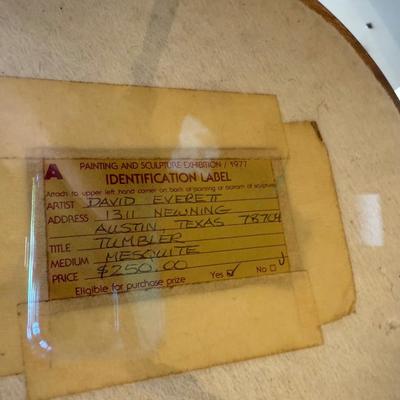 A PAINTING AND SCULPTURE EXHIBITION / 1977
IDENTIFICATION LABEL
Attach to upper left hand corner on back of painting or bottom of sculpture
ARTIST DAVID EVERETT
ADDRESS 1311 NEWNING
AUSTIN, TEXAS 78704
TITLE TUMBLER
MEDIUM MESQUITE
PRICE $250.00
Eligible for purchase prize Yes ☑ No ☐